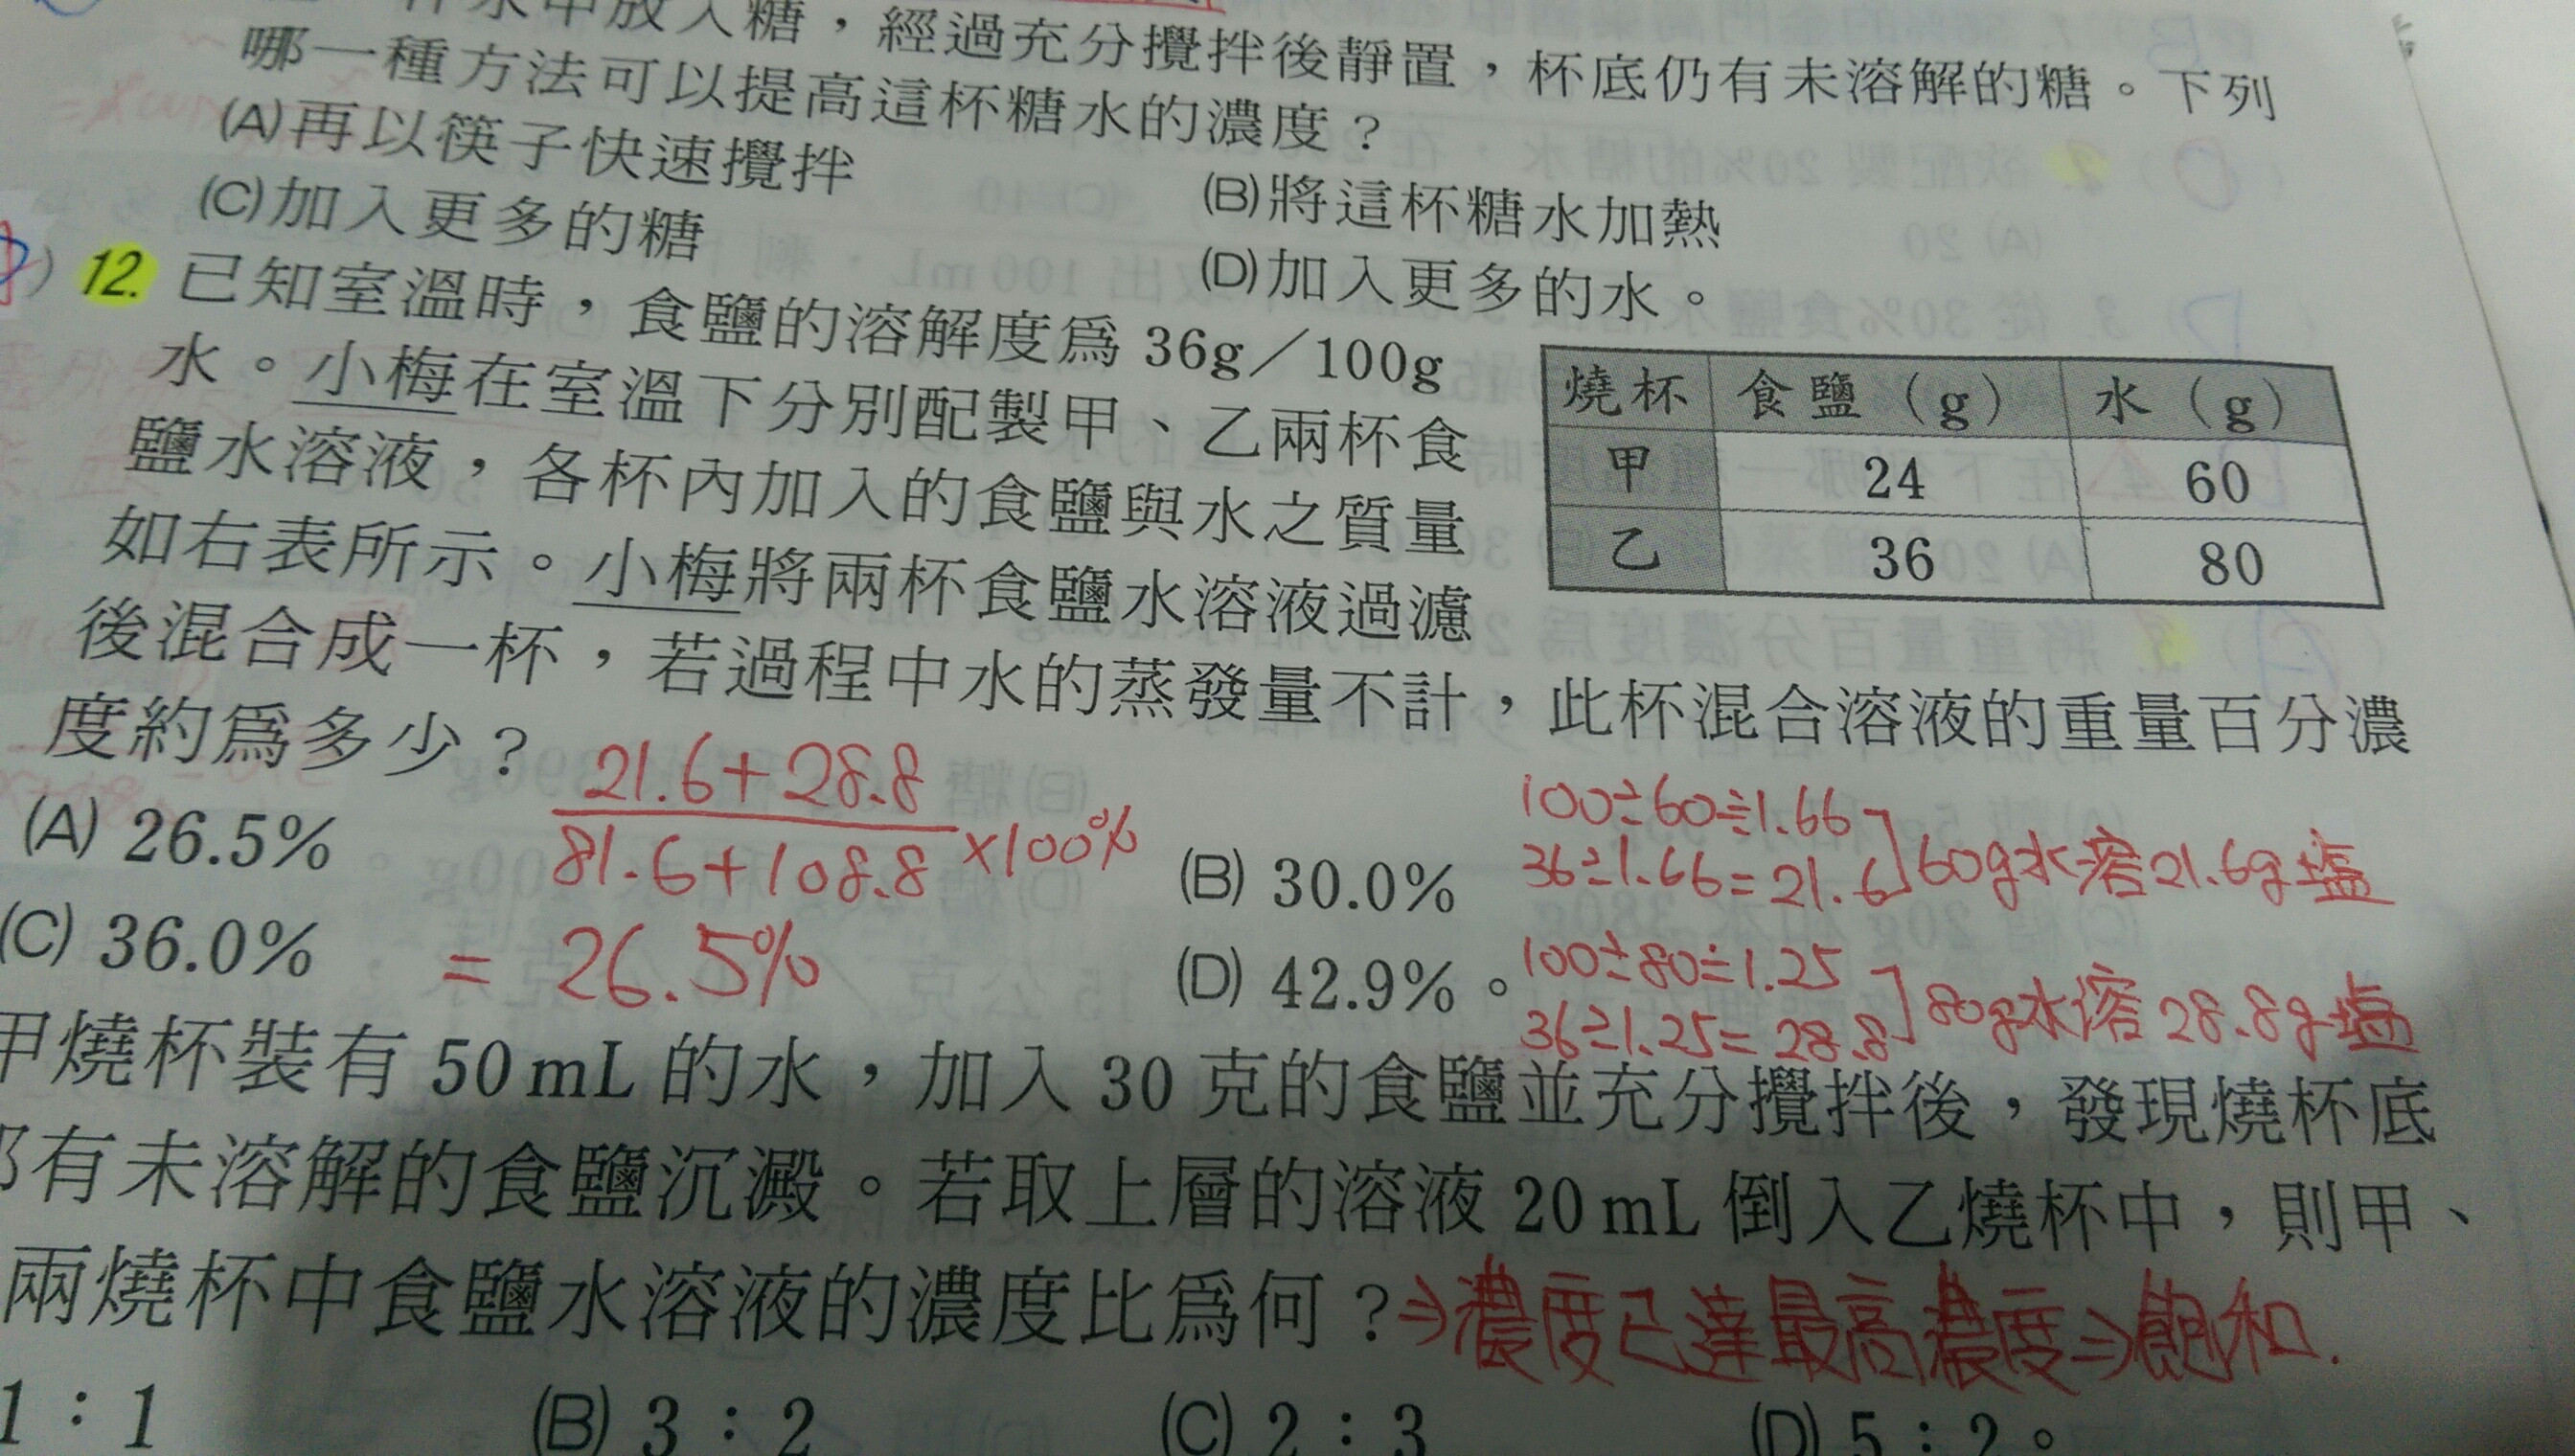 杯水中放入糖，經過充分攪拌後靜置，杯底仍有未溶解的糖。下列
哪一種方法可以提高這杯糖水的濃度？
(A)再以筷子快速攪拌
(B)將這杯糖水加熱
(C)加入更多的糖
(D)加入更多的水。
12. 已知室溫時，食鹽的溶解度為 36g／100g
水。小梅在室溫下分別配製甲、乙兩杯食
鹽水溶液，各杯內加入的食鹽與水之質量
如右表所示。小梅將兩杯食鹽水溶液過濾
後混合成一杯，若過程中水的蒸發量不計，此杯混合溶液的重量百分濃
度約為多少？
燒杯 食鹽（g） 水（g）
甲 24 60
乙 36 80
21.6+28.8
81.6+108.8 ×100%
= 26.5%
(A) 26.5%
(B) 30.0%
(C) 36.0%
(D) 42.9%。
100÷60≒1.66
36÷1.66=21.6
60g水溶21.6g塩
100÷80≒1.25
36÷1.25=28.8
80g水溶28.8g塩
甲燒杯裝有 50 mL 的水，加入 30 克的食鹽並充分攪拌後，發現燒杯底
有未溶解的食鹽沉澱。若取上層的溶液 20 mL 倒入乙燒杯中，則甲、
兩燒杯中食鹽水溶液的濃度比為何？⇒濃度已達最高濃度⇒飽和.
1：1
(B) 3：2
(C) 2：3
(D) 5：2。